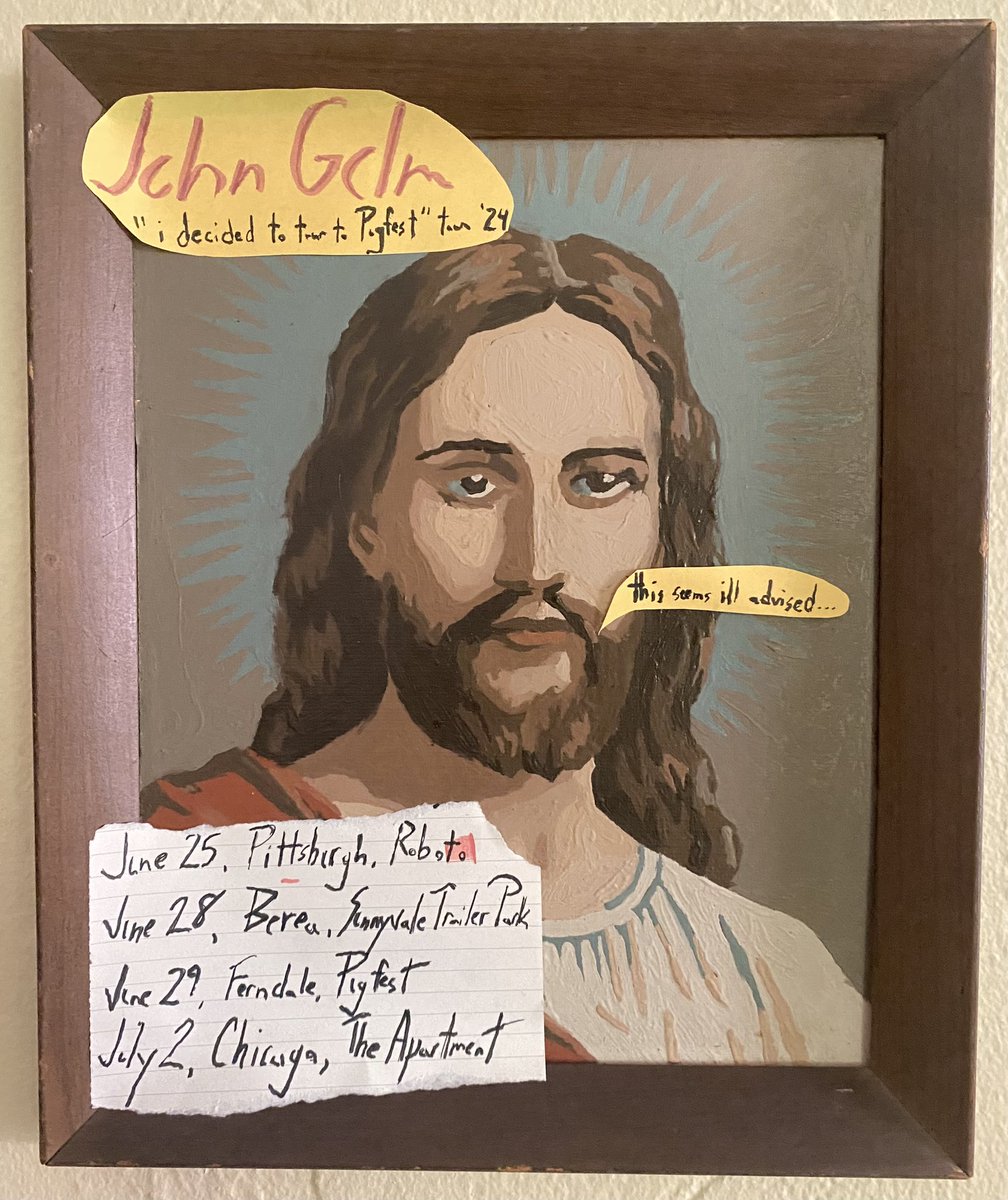 John Galm
"i decided to tour to Pigfest" tour '24
this seems ill advised...
June 25, Pittsburgh, Roboto
June 28, Berea, Sunnyvale Trailer Park
June 29, Ferndale, Pigfest
July 2, Chicago, The Apartment